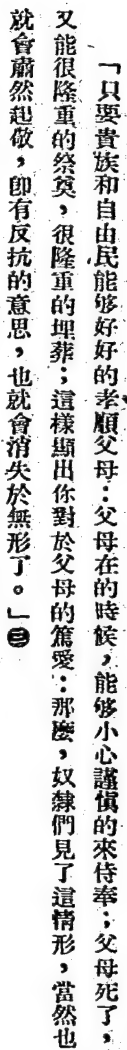 「只要貴族和自由民能够好好的孝順父母:父母在的時候,能够小心謹慎的來侍奉;父母死了,
又能很隆重的祭奠,很隆重的埋葬;這樣顯出你對於父母的篤愛:那麽,奴隸們見了這情形,當然也
就會肅然起敬,卽有反抗的意思,也就會消失於無形了。」㊂